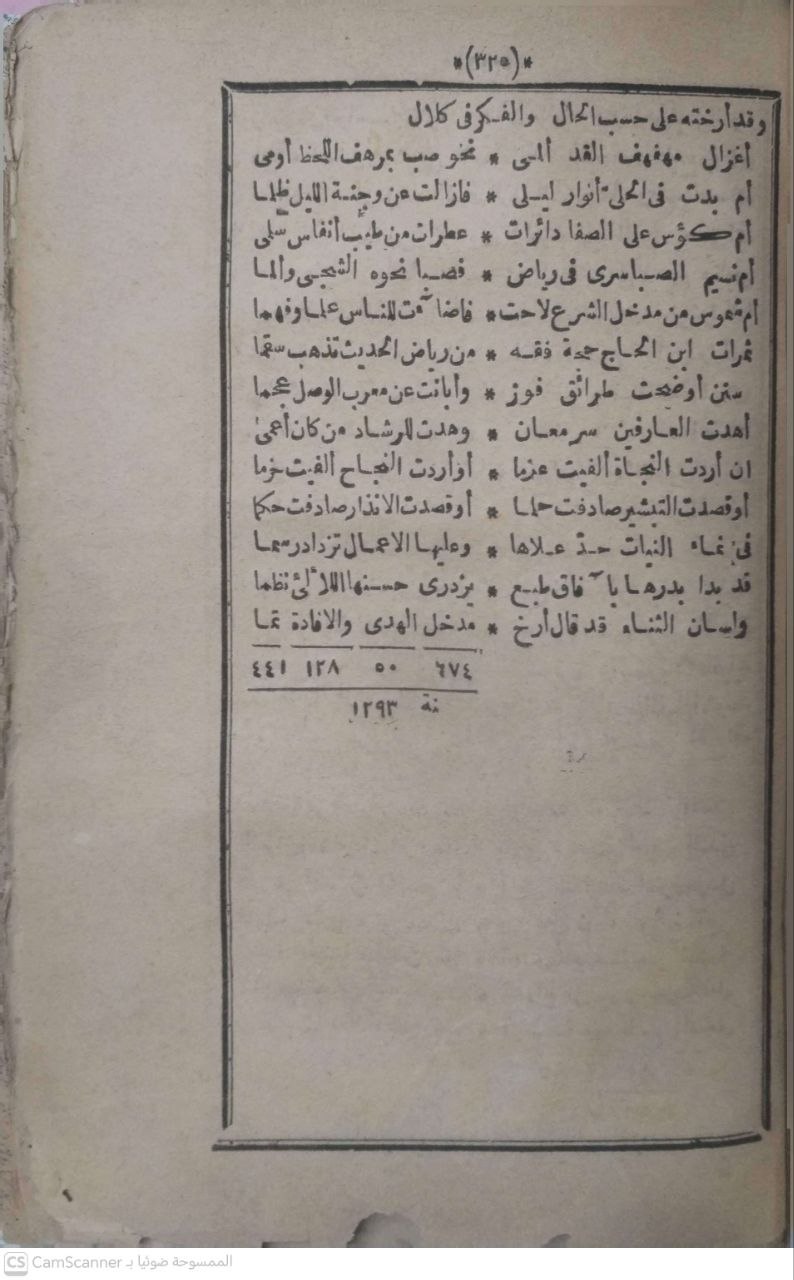 *(٣٢٥)*
وقد أرخته على حسب الحال والفكر فى كلال
أغزال مهفهف القد ألمى * نحو صب بمرهف اللحظ أومى
أم بدت فى الحلى أنوار ليلى * فازالت عن وجنة الليل ظلما
أم كؤس على الصفا دائرات * عطرات من طيب أنفاس سلمى
أم نسيم الصبا سرى فى رياض * فصبا نحوه الشجى وألما
أم شموس من مدخل الشرع لاحت * فاضاءت للناس علما وفهما
ثمرات ابن الحاج حجة فقه * من رياض الحديث تذهب سقما
سنن أوضحت طرائق فوز * وأبانت عن معرب الوصل عجما
أهدت العارفين سر معان * وهدت للرشاد من كان أعمى
ان أردت النجاة ألفيت عزما * أو أردت النجاح ألفيت حزما
أو قصدت التبشير صادفت حلما * أو قصدت الانذار صادفت حكما
فى نماء النيات حد علاها * وعليها الاعمال تزداد رسما
قد بدا بدرها بآفاق طبع * يزدرى حسنها اللآلئ نظما
ولسان الثناء قد قال أرخ * مدخل الهدى والافادة تما
٦٧٤ ٥٠ ١٢٨ ٤٤١
نة ١٢٩٣
١
CS CamScanner الممسوحة ضوئيا بـ